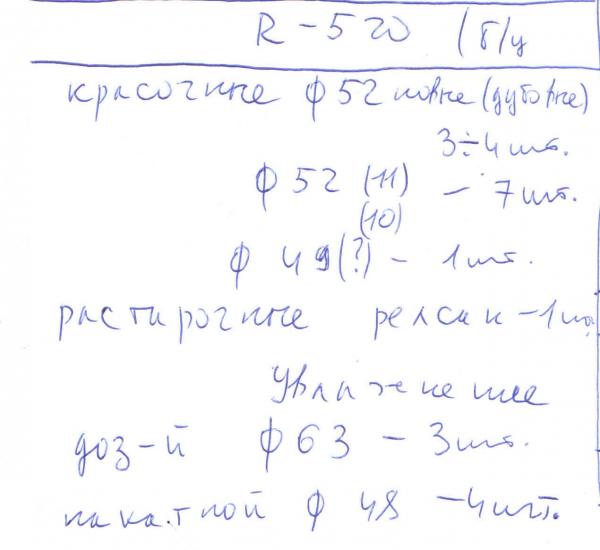 R-520 (б/у
красочные ф 52 новые (дуговые)
3÷4 шт.
ф 52 (11) - 7 шт.
(10)
ф 49 (?) - 1 шт.
растирочные релсан - 1 шт
Увлажнение
доз-й ф 63 - 3 шт.
накатной ф 48 - 4 шт.